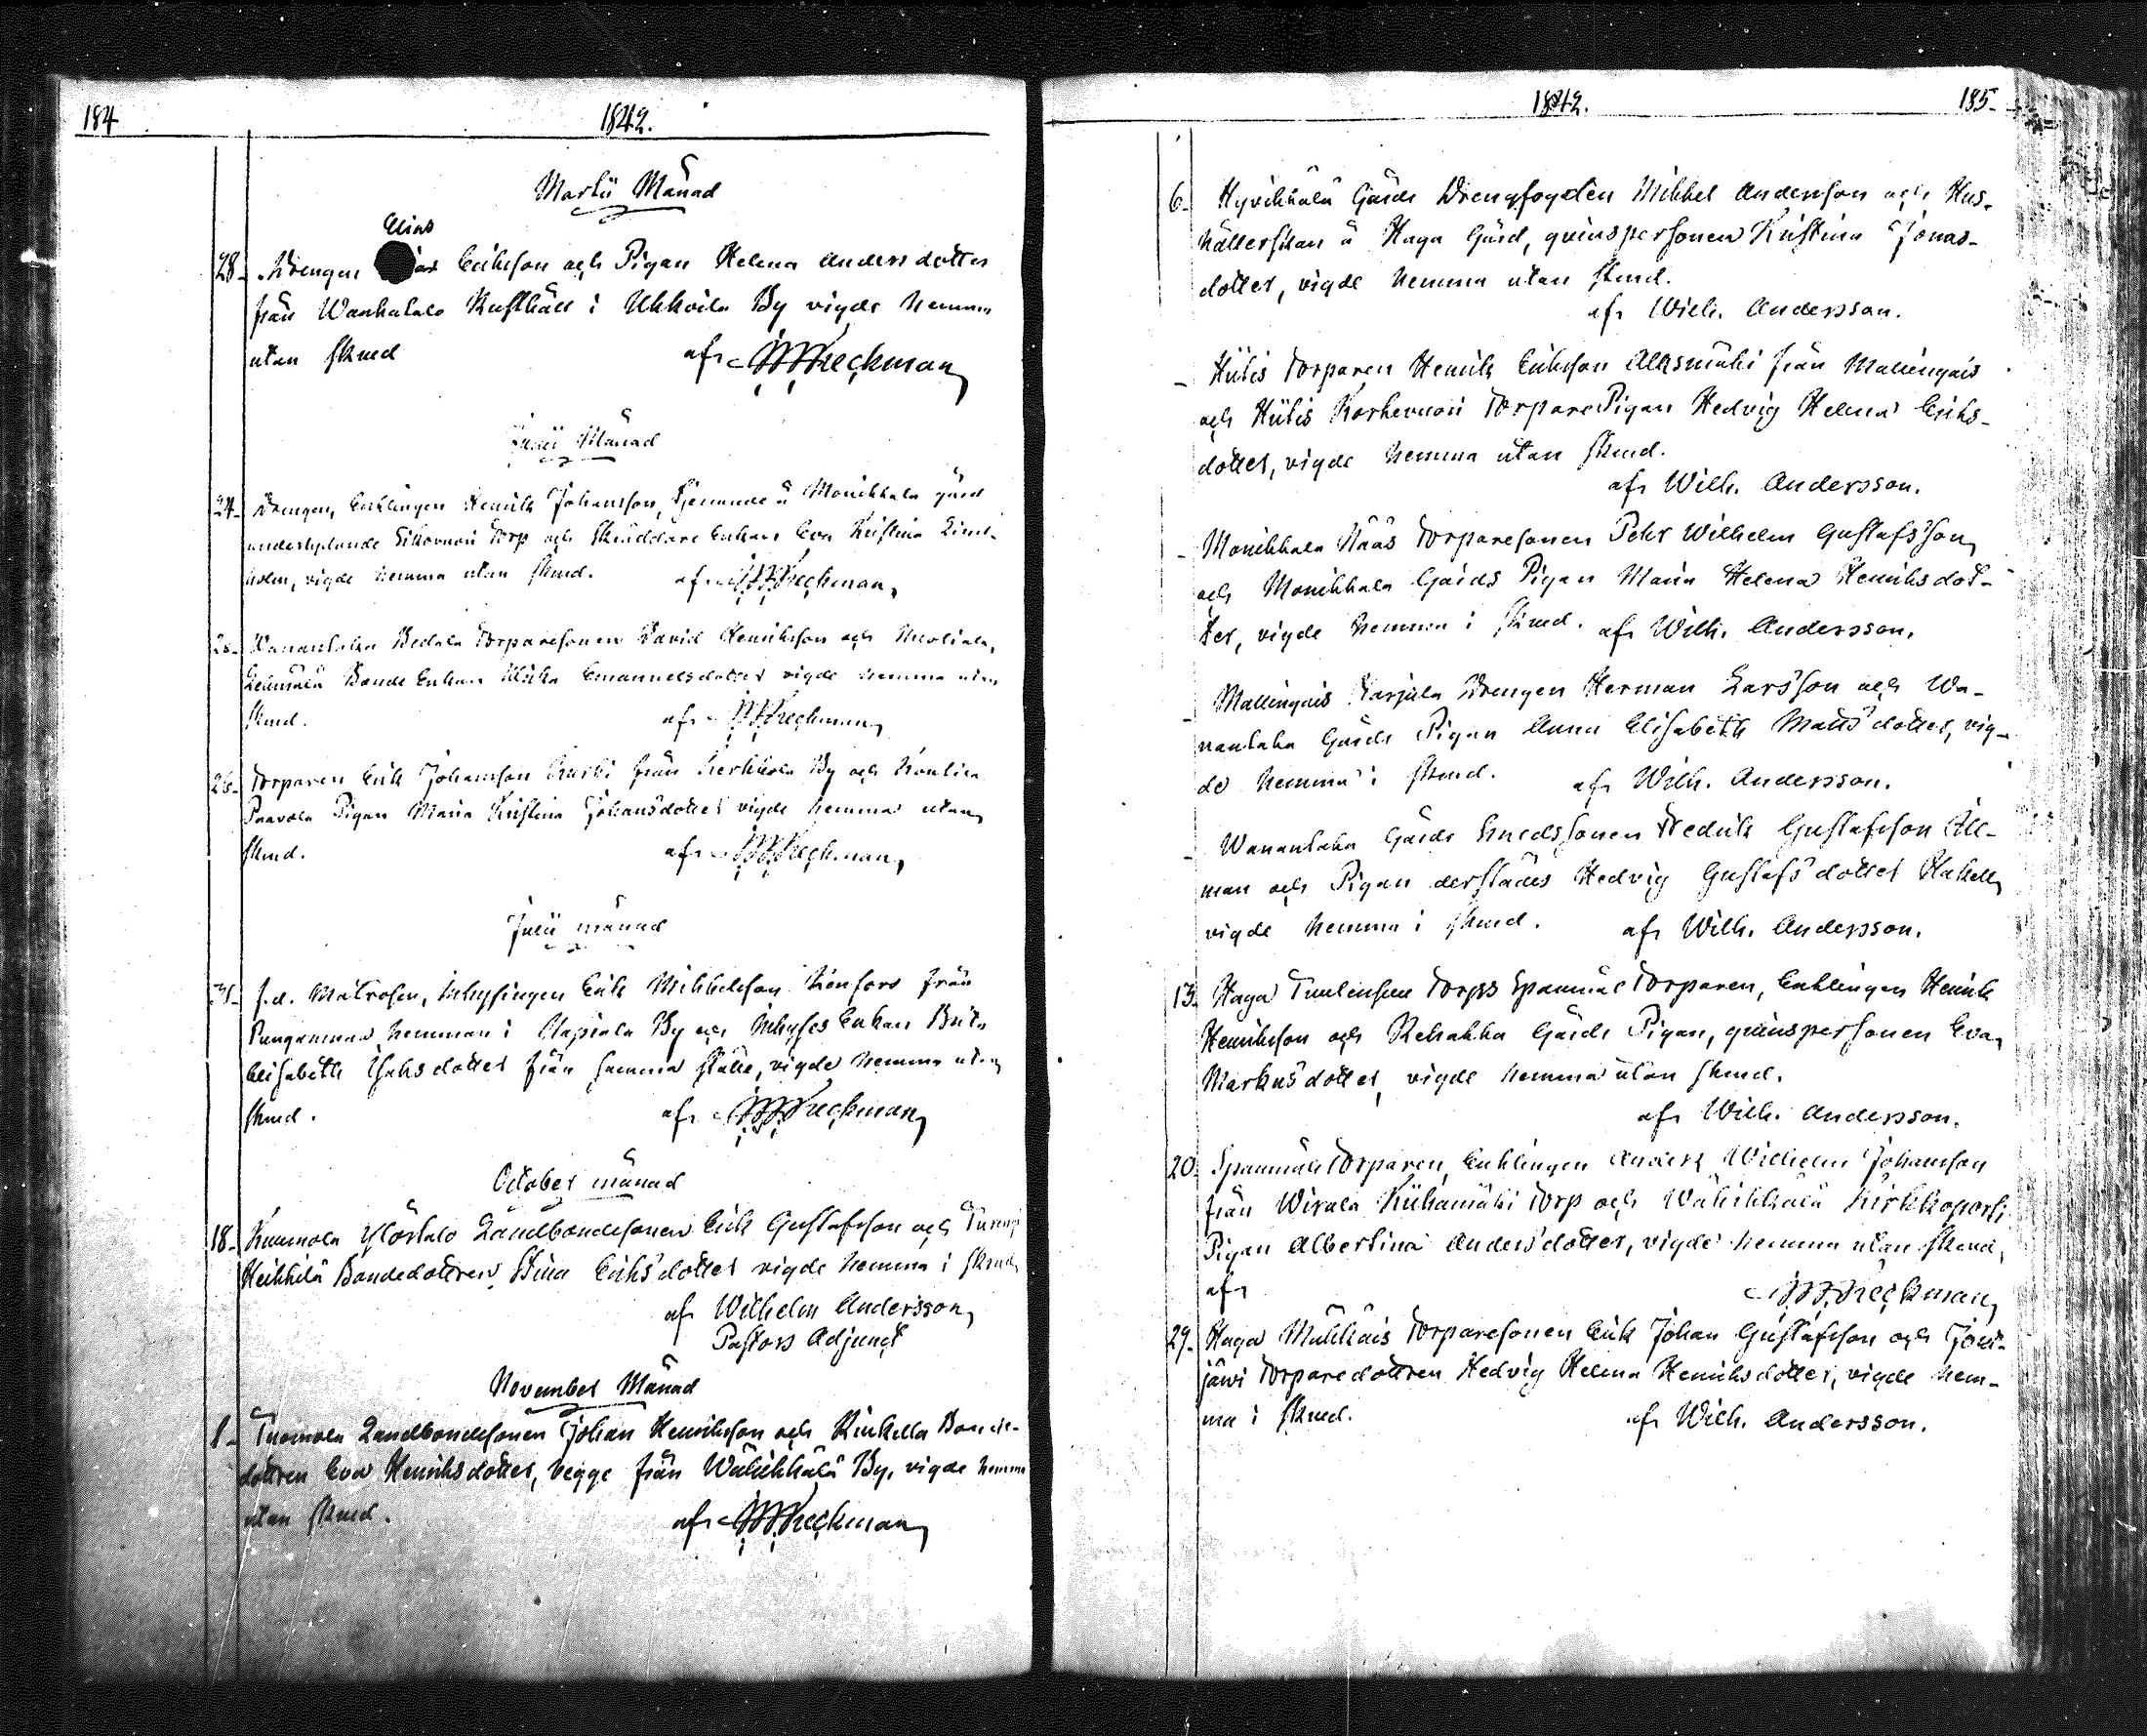 184
1842.
Martii Månad
Elias
28. Drengen Erikson och Pigan Helena Andersdotter
från Wanhatalo Rusthåll i Uhkoila By vigde hemma
utan skrud af Freckman
Junii Månad
24. Drengen, Enklingen Henrik Johansson, tjenande å Monikkala gård
underlydande torp och Skräddare Enkan Eva Kristina Lind-
holm, vigde hemma utan skrud. af Freckman
Wanantaka Torparesonen David Henrikson och
Bonde Enkan Ulrika Emanuelsdotter vigde hemma utan
skrud. af Freckman
26. Torparen Erik Johansson från Kerkkola By och
Paavola Pigan Maria Kristina Johansdotter vigde hemma utan
skrud. af Freckman
Julii månad
f.d. Matrosen, Inhysingen Erik Mikkelson från
hemman i By och Inhyses Enkan Brit.
Elisabeth Isaksdotter från samma ställe, vigde hemma utan
skrud. af Freckman
October månad
18. Kuumola Ylöstalo Landbondesonen Erik Gustafson och
Heikkilä Bondedottren Stina Eriksdotter vigde hemma i skrud
af Wilhelm Andersson,
Pastors Adjunct
November Månad
1. Tuomola Landbondesonen Johan Henrikson och Rinkella Bonde-
dottren Eva Henriksdotter, begge från Wälikkälä By, vigde hemma
utan skrud. af Freckman
1842.
185.
6. Hyvikkälä Gårds Drengfogden Mikkel Anderson och Hus-
hållerskan å Haga Gård, qvinspersonen Kristina Jonas-
dotter, vigde hemma utan skrud.
af Wilh. Andersson.
Hiitis Torparen Henrik Erikson Alhsmäki från Mallingais
och Hiitis Torpare Pigan Hedvig Helena Eriks-
dotter, vigde hemma utan skrud.
af Wilh. Andersson.
Monikkala Näås Torparesonen Petr Wilhelm Gustafsson
och Monikkala Gårds Pigan Maria Helena Henriksdot-
ter, vigde hemma i skrud. af Wilh. Andersson.
Mallingais Harjula Drengen Herman Larsson och Wa-
nantaka Gårds Pigan Anna Elisabeth Mattsdotter, vig-
de hemma i skrud. af Wilh. Andersson.
Wanantaka Gårds Smedssonen Fredrik Gustafson Äll-
man och Pigan derstädes Hedvig Gustafsdotter
vigde hemma i skrud. af Wilh. Andersson.
13. Haga Torps Spanmåls Torparen, Enklingen Henrik
Henrikson och Rehakka Gårds Pigan, qvinspersonen Eva
Markusdotter, vigde hemma utan skrud.
af Wilh. Andersson.
20. Spanmåls Torparen, Enklingen Anders Wilhelm Johansson
från Wirala Riihamäki Torp och Wälikkälä
Pigan Albertina Andersdotter, vigde hemma utan skrud,
af Freckman
29. Haga Torparesonen Erik Johan Gustafson och
järvi Torparedottren Hedvig Helena Henriksdotter, vigde hem-
ma i skrud. af Wilh. Andersson.